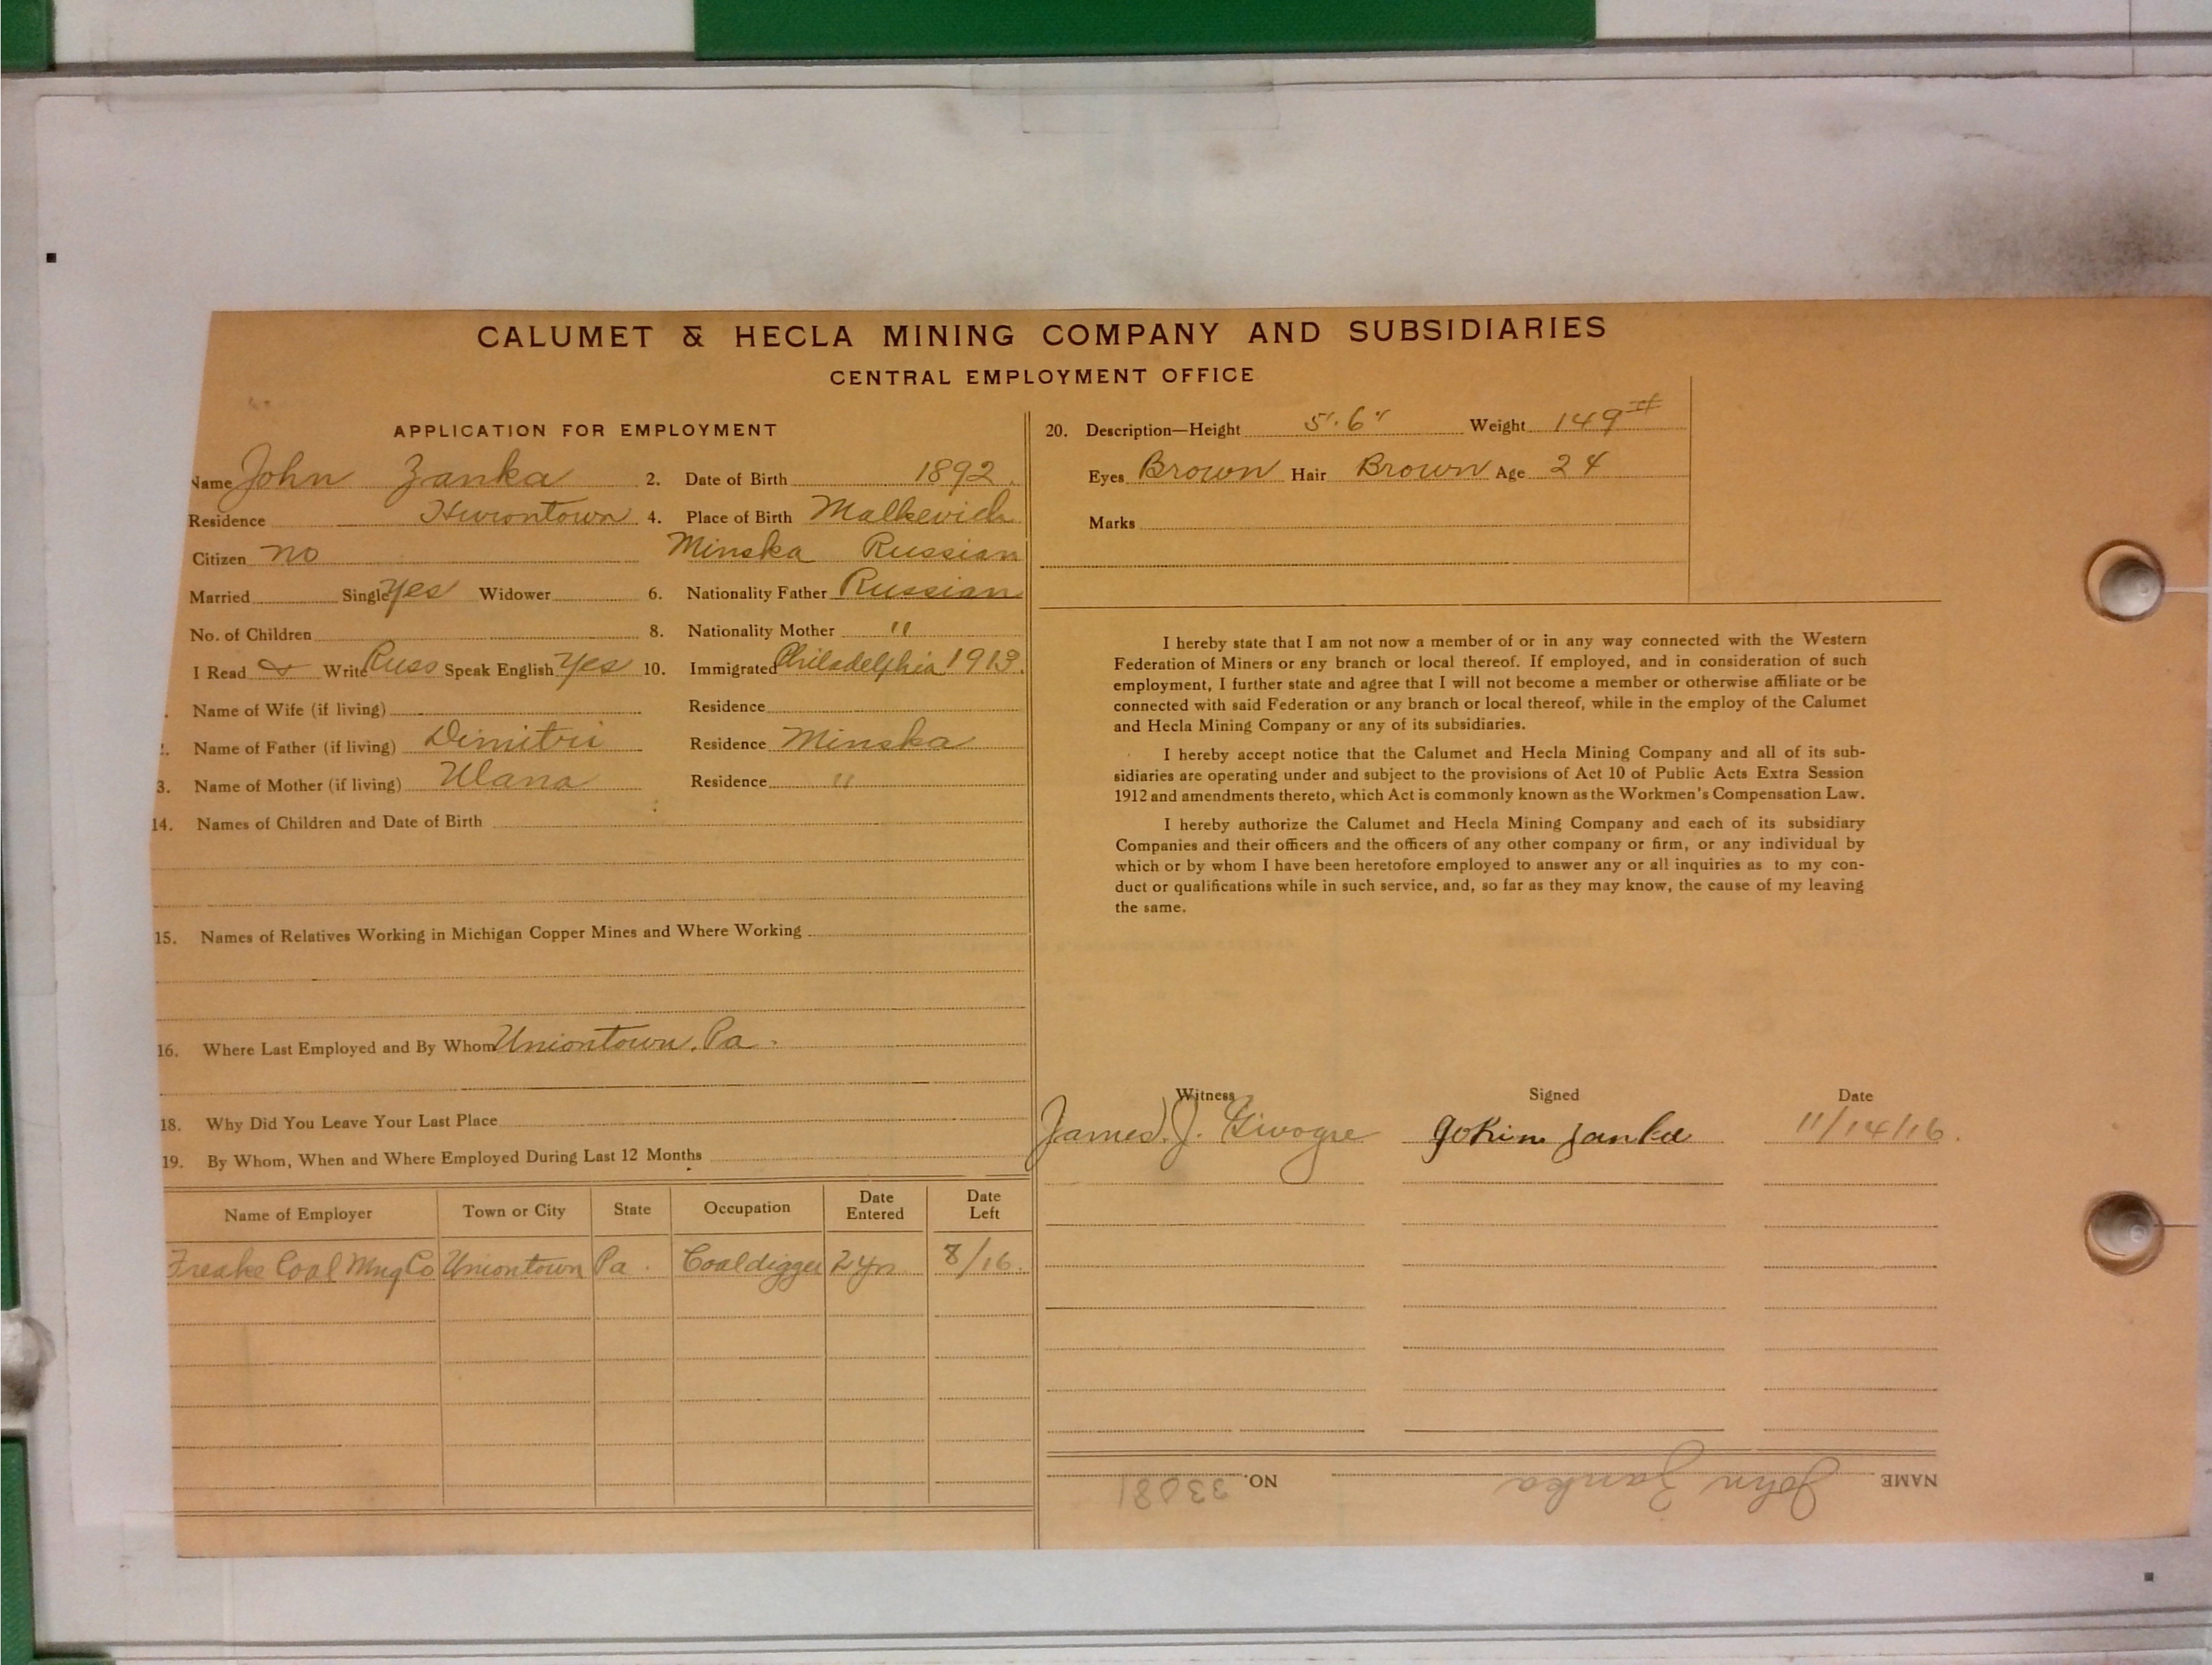 CALUMET & HECLA MINING COMPANY AND SUBSIDIARIES
CENTRAL EMPLOYMENT OFFICE
APPLICATION FOR EMPLOYMENT
Name John Zanka 2. Date of Birth 1892.
Residence Hurontown 4. Place of Birth Malkevich
Citizen no Minska Russian
Married Single yes Widower 6. Nationality Father Russian
No. of Children 8. Nationality Mother "
I Read & Write Russ Speak English Yes 10. Immigrated Philadelphia 1913.
Name of Wife (if living) Residence
2. Name of Father (if living) Dimitri Residence Minska
3. Name of Mother (if living) Ulana Residence "
14. Names of Children and Date of Birth
15. Names of Relatives Working in Michigan Copper Mines and Where Working
16. Where Last Employed and By Whom Uniontown, Pa.
18. Why Did You Leave Your Last Place
19. By Whom, When and Where Employed During Last 12 Months
Name of Employer Town or City State Occupation Date Entered Date Left
Coal Mng Co Uniontown Pa. Coaldigger 2 yrs 8/16.
20. Description—Height 5'.6" Weight 149#
Eyes Brown Hair Brown Age 24
Marks
I hereby state that I am not now a member of or in any way connected with the Western
Federation of Miners or any branch or local thereof. If employed, and in consideration of such
employment, I further state and agree that I will not become a member or otherwise affiliate or be
connected with said Federation or any branch or local thereof, while in the employ of the Calumet
and Hecla Mining Company or any of its subsidiaries.
I hereby accept notice that the Calumet and Hecla Mining Company and all of its sub-
sidiaries are operating under and subject to the provisions of Act 10 of Public Acts Extra Session
1912 and amendments thereto, which Act is commonly known as the Workmen's Compensation Law.
I hereby authorize the Calumet and Hecla Mining Company and each of its subsidiary
Companies and their officers and the officers of any other company or firm, or any individual by
which or by whom I have been heretofore employed to answer any or all inquiries as to my con-
duct or qualifications while in such service, and, so far as they may know, the cause of my leaving
the same.
Witness Signed Date
James J. 11/14/16.
NAME John Zanka NO. 33081